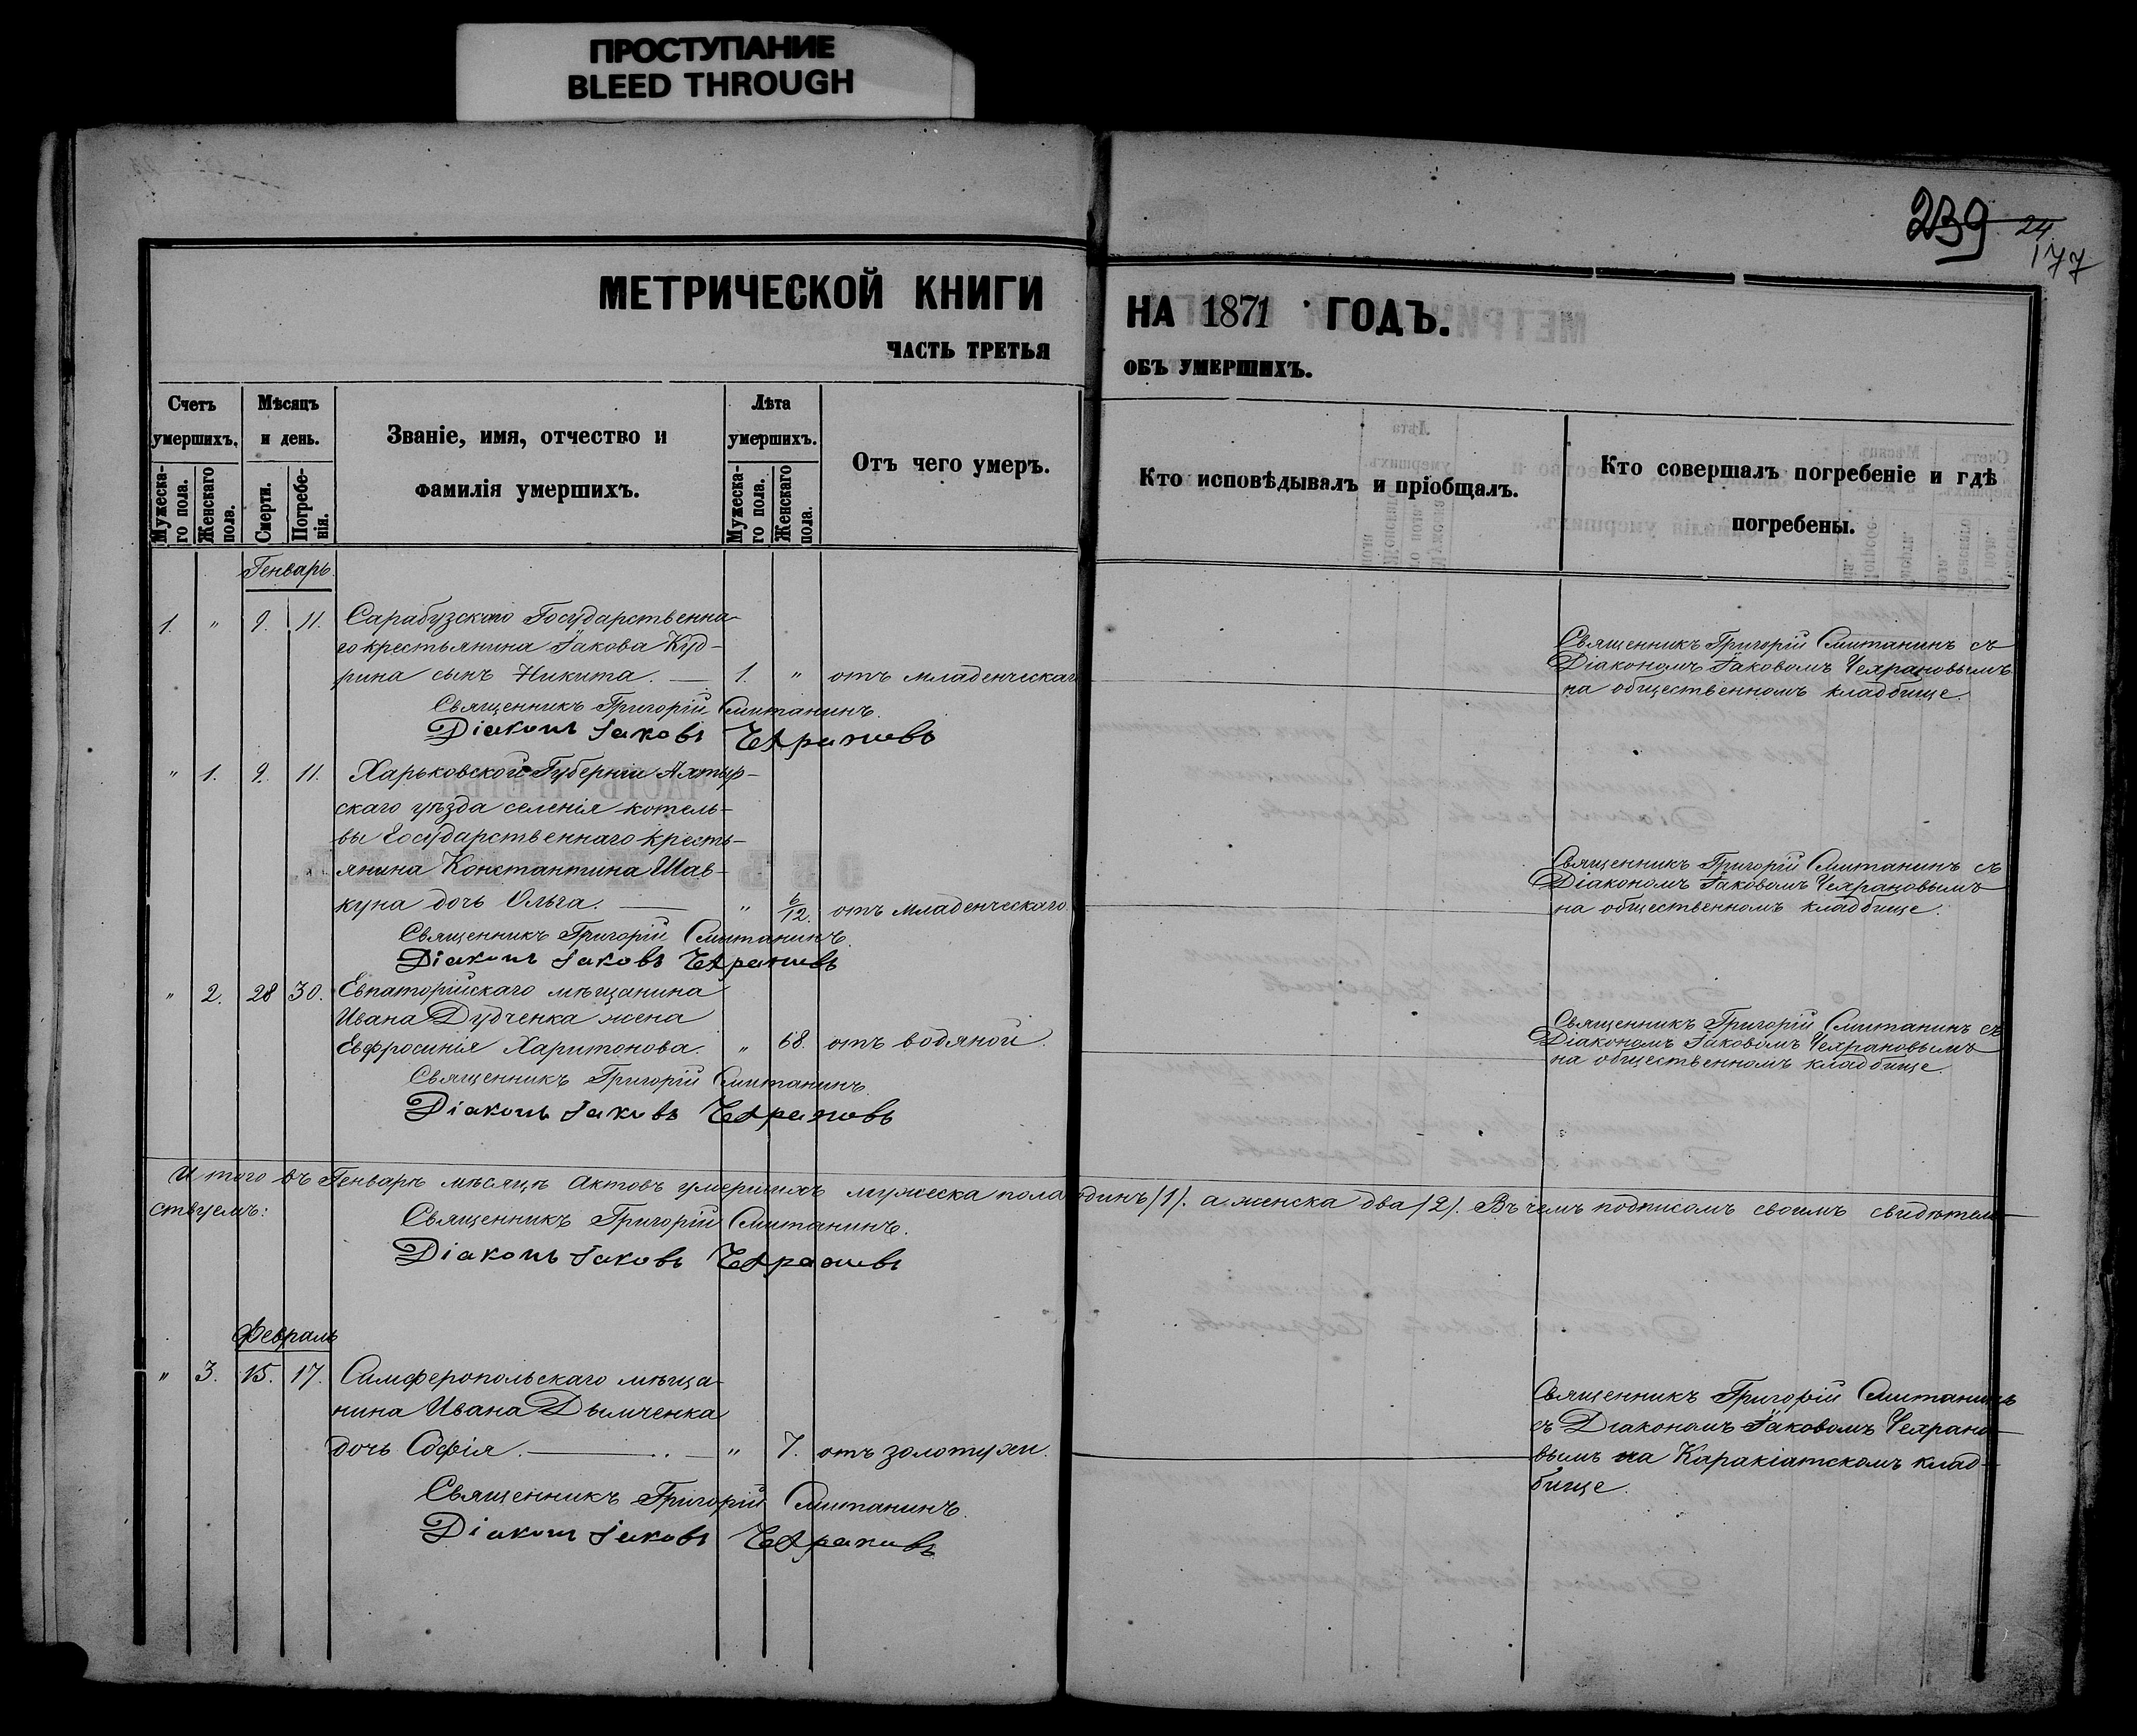 ПРОСТУПАНИЕ
BLEED THROUGH
239 24
177
МЕТРИЧЕСКОЙ КНИГИ НА 1871 ГОДЪ.
ЧАСТЬ ТРЕТЬЯ ОБЪ УМЕРШИХЪ.
Счетъ умершихъ.
Мужеска-го пола.
Женскаго пола.
Мѣсяцъ и день.
Смерти.
Погребе-нія.
Званіе, имя, отчество и
фамилія умершихъ.
Лѣта умершихъ.
Мужеска-го пола.
Женскаго пола.
Отъ чего умеръ.
Кто исповѣдывалъ и пріобщалъ.
Кто совершалъ погребеніе и гдѣ
погребены.
Генварь.
1. " 9. 11. Сарабузскаго Государственна-
го крестьянина Іакова Куд-
рина сынъ Никита. — 1. " отъ младенческаго
Священникъ Григорій Смитанинъ съ
Діакономъ Іаковомъ Чехрановымъ
на общественномъ кладбище.
Священникъ Григорій Смитанинъ.
Діаконъ Іаковъ Чехрановъ
" 1. 9. 11. Харьковской Губерніи Ахтыр-
скаго уѣзда селенія котель-
вы Государственнаго кресть-
янина Константина Шав-
куна дочь Ольга. — " 6/12. отъ младенческаго.
Священникъ Григорій Смитанинъ съ
Діакономъ Іаковомъ Чехрановымъ
на общественномъ кладбище.
Священникъ Григорій Смитанинъ.
Діаконъ Іаковъ Чехрановъ
" 2. 28 30. Евпаторійскаго мѣщанина
Ивана Дудченка жена
Евфросинія Харитонова. " 68. отъ водяной.
Священникъ Григорій Смитанинъ съ
Діакономъ Іаковомъ Чехрановымъ
на общественномъ кладбище.
Священникъ Григорій Смитанинъ.
Діаконъ Іаковъ Чехрановъ
Итого въ Генварѣ мѣсяцѣ Актовъ умершихъ мужеска пола одинъ /1/. а женска два /2/. Въ чемъ подписомъ своимъ свидѣтель-
ствуемъ:
Священникъ Григорій Смитанинъ.
Діаконъ Іаковъ Чехрановъ
Февраль
" 3. 15. 17. Симферопольскаго мѣща-
нина Ивана Дымченка
дочь Софія. — " 7. отъ золотухи.
Священникъ Григорій Смитанинъ
съ Діакономъ Іаковомъ Чехрано-
вымъ на Каракіатскомъ клад-
бище.
Священникъ Григорій Смитанинъ.
Діаконъ Іаковъ Чехрановъ